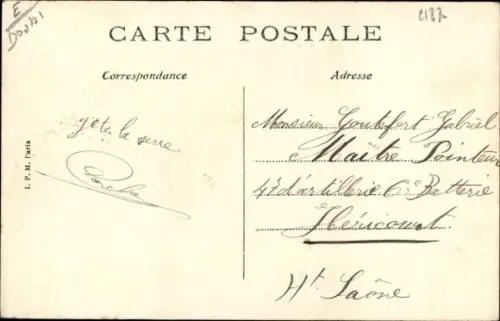 E
Doubs
2187
CARTE POSTALE
Correspondance
Adresse
je te la serre
I. P. M. Paris
Monsieur Goutefort Gabriel
Maître Pointeur
47 d'artillerie 6e Batterie
Héricourt
Hte Saône